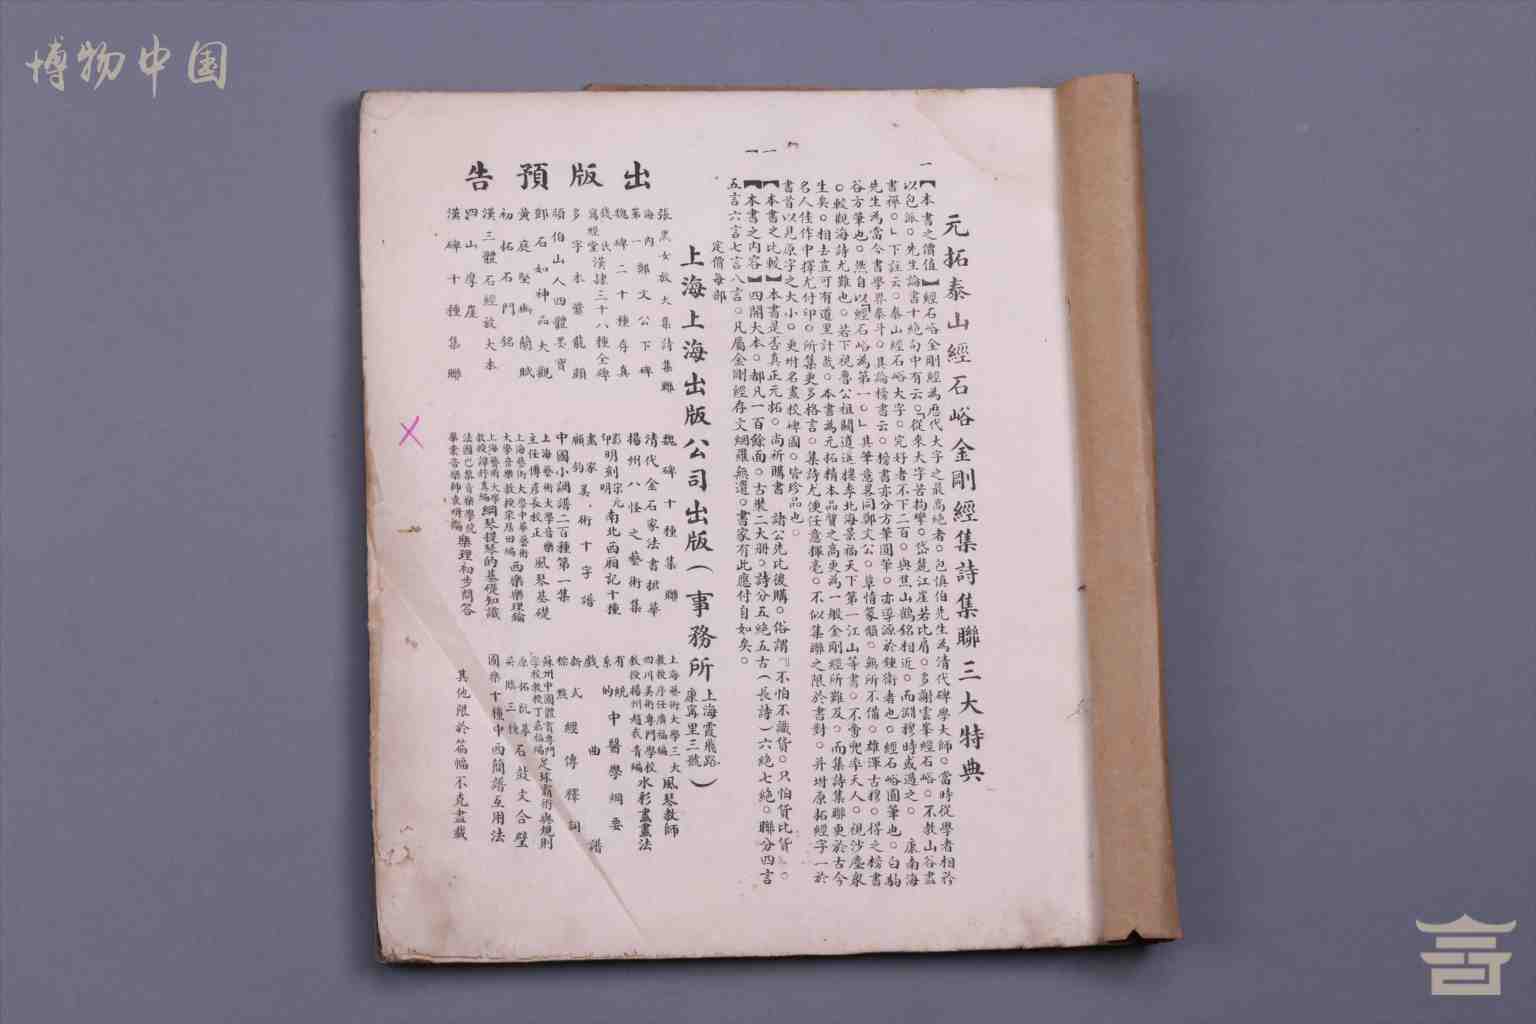 博物中国
元拓泰山經石峪金剛經集詩集聯三大特典
一【本書之價值】經石峪金剛經為歷代大字之最高絶者。包慎伯先生為清代碑學大師。當時從學者相矜
以包派。先生論書十絶句中有云。「從來大字苦拘攣。岱麓江崖若比肩。多謝雲峯經石峪。不教山谷盡
書禪。」下註云。泰山經石峪大字。完好者不下二百。與焦山鶴銘相近。而淵穆時或過之。康南海
先生為當今書學界泰斗。其論榜書云。榜書亦分方筆圓筆。亦導源於鍾衛者也。經石峪圓筆也。白駒
谷方筆也。然自以「經石峪為第一。」其筆意畧同鄭文公。草情篆韻。無所不備。雄渾古穆。得之榜書
。較觀海詩尤難也。若下視魯公祖關道逍摟李北海景福天下第一江山等書。不啻兜率天人。視沙塵衆
生矣。相去豈可有道里計哉。本書為元拓精本品質之高更為一般金剛經所難及。而集詩集聯更於古今
名人佳作中擇尤付印。所集更多格言。集詩尤便任意揮毫。不似集聯之限於書對。并坿原拓經字一於
書首以見原字之大小。更坿名畫校碑圖。皆珍品也。
一【本書之比較】本書是否真正元拓。尚祈購書 諸公先比後購。俗謂『不怕不識貨。只怕貨比貨』。
一【本書之内容】四開大本。都凡一百餘面。古裝二大册。詩分五絶五古(長詩)六絶七絶。聯分四言
五言六言七言八言。凡屬金剛經存文網羅無遺。書家有此應付自如矣。
定價每部
上海上海出版公司出版(事務所上海霞飛路康寗里三號)
出版預告
張黑女放大集詩集聯
海内第一鄭文公下碑
魏碑二十種存真
錢氏寫經堂漢隸三十八種全碑
多字本爨龍顏
頑伯山人四體墨寶
鄭石如神品大觀
黄庭堅幽蘭賦
初拓石門銘
漢三體石經放大本
四山摩崖
漢碑十種集聯
魏碑十種集聯
清代金石家法書摭華
揚州八怪之藝術集
影印明刻宋元明南北西廂記十種
畫家美術十字譜
顧鈞
中國小調譜二百種第一集
上海藝術大學音樂主任傅彦長校正 風琴基礎
上海藝術大學中華藝術大學音樂教授宋居田編 西樂樂理論
上海藝術大學教授譚抒真編 鋼琴提琴的基礎知識
法國巴黎音樂學院畢業音樂師袁昞編 樂理初步問答
上海藝術大學三大教授序任廣福編 風琴教師
四川美術專門學校教授揚州趙我青編 水彩畫畫法
有統系的中醫學綱要
戲曲譜
新式標點經傳釋詞
蘇州中國體育專門學校教授丁嘉福編 足球術與規則
原拓阮摹吳臨三種石鼓文合璧
國樂十種中西簡譜互用法
其他限於篇幅不克盡載